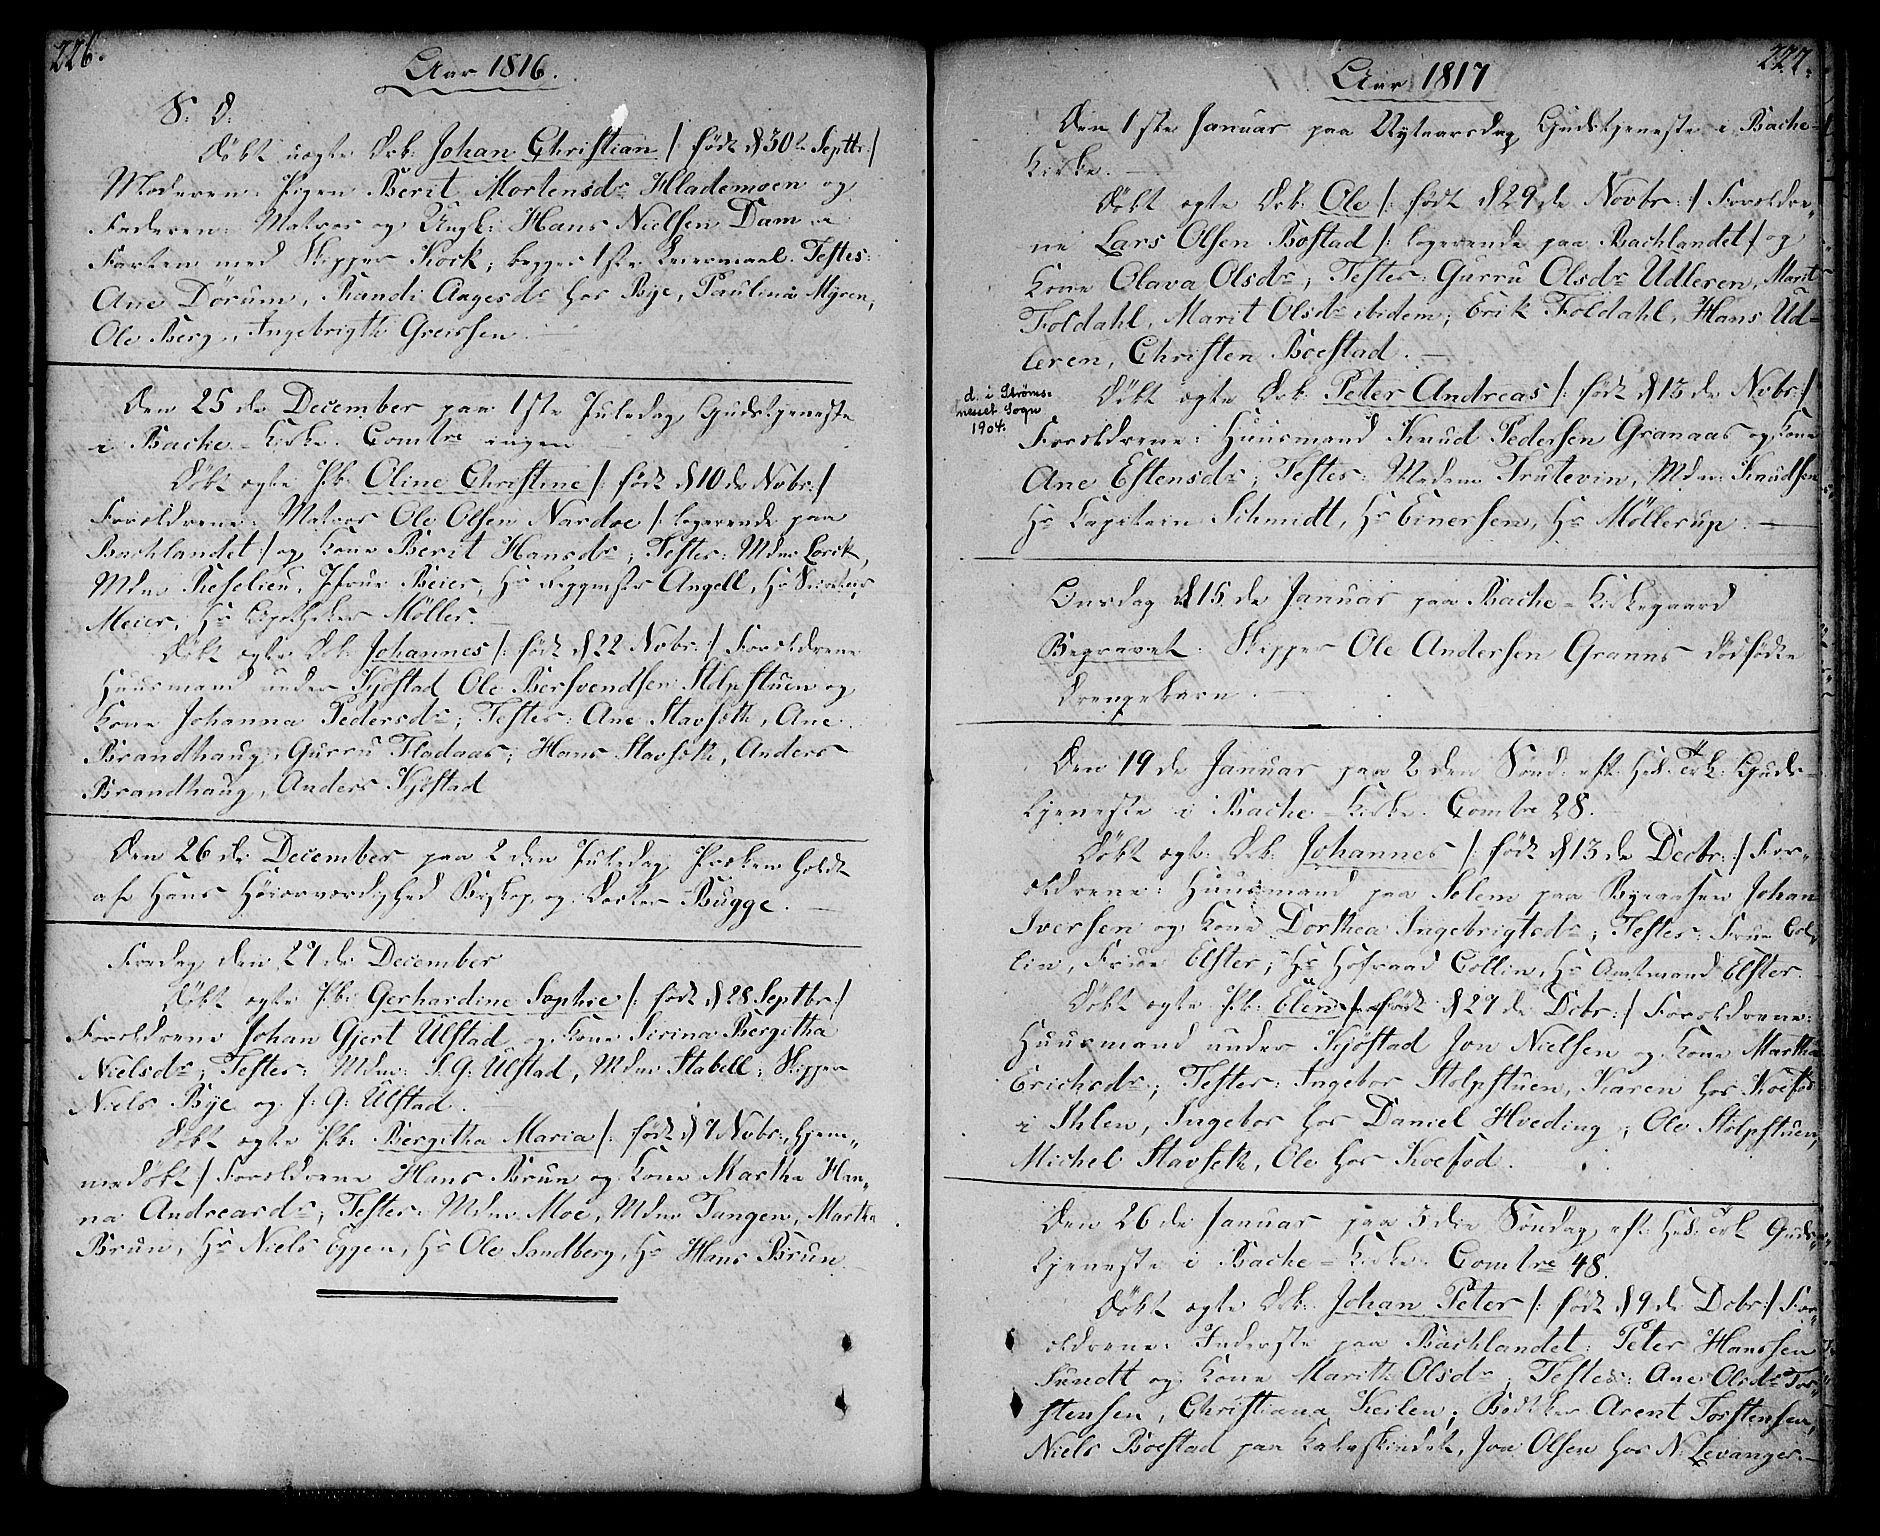 226.
Aar 1816.
S: D:
Döbt uægte Drb: Johan Christian /: född d 30te Septbr:/
Moderen: Pigen Berit Mortensdr Hlademoen og
Faderen: Matros og Ungk: Hans Nielsen Dam
Farten med Skipper Kock; begges 1ste Leiermaal. Testes:
Ane Dörum, Randi Aagesdr hos Bye, Paulina Myren,
Ole Berg, Ingebrigth Greissen.
Den 25de December paa 1ste Juledag Gudstjeneste
i Bache-Kirke. Comtre ingen
Döbt ægte Pb: Oline Christine /: född d 10de Nobr:/
Forældrene: Matros Ole Olsen Nardoe /: logerende paa
Bachlandet:/ og Kone Berit Hansdr; Testes: Mdme Lorck,
Mdme Reselieu, Jfrue Beier, Hr Angell, Hr
Meier, Hr Apotheker Möller.
Döbt ægte Drb: Johannes /: född d 22 Nobr:/ Forældrene
Huusmand under Kystad Ole Bersvendsen Stolpstuen og
Kone Johanna Pedersdr; Testes: Ane Stavseth, Ane
Brandhaug, Gurru Fladaas; Hans Stavseth, Anders
Brandhaug, Anders Kystad
Den 26de December paa 2den Juledag Præken holdt
af Hans Höiærværdighed Biskop og Doctor Bugge.
Fredag den 27de December
Döbt ægte Pb: Gerhardine Sophie /: född d 28 Septbr:/
Forældrene Johan Gjert Ulstad og Kone Sirina Bergitha
Nielsdr; Testes: Mdme S. G: Ulstad, Mdme Stabell; Skipper
Niels Bye og J: G: Ulstad.
Döbt ægte Pb: Bergitha Maria /: född d 7 Nobr:, hjem-
medöbt:/ Forældrene Hans Brun og Kone Martha Han-
na Andreasdr; Testes: Mdme Moe, Mdme Tangen, Martha
Brun, Hr Niels Eggen, Hr Ole Sandberg, Hr Hans Brun
227.
Aar 1817
Den 1ste Januar paa Nytaarsdag Gudstjeneste i Bache-
Kirke.
Döbt ægte Drb: Ole /: född d 29de Novbr:/ Forældre-
ne Lars Olsen Bostad /: logerende paa Bachlandet:/ og
Kone Olava Olsdr; Testes: Gurru Olsdr Udleren, Marit
Foldahl, Marit Olsdr ibidem; Erik Foldahl, Hans Ud-
leren, Christen Boestad.
d. i Strøms-
nesset Sogn
1904.
Döbt ægte Drb: Peter Andreas /: född d 13de Nobr:/
Forældrene: Huusmand Knud Pedersen Granaas og Kone
Ane Estensdr; Testes: Madam Trutevin, Mdme Knudsen
Hr Capitain Schmidt, Hr Einersen, Hr Möllerup.
Onsdag d 15de Januar paa Bache-Kirkegaard
Begravet. Skipper Ole Andersen Granns dödfödte
Drengebarn.
Den 19de Januar paa 2den Sönd: eft: Hel: 3 K: Guds-
tjeneste i Bache-Kirke. Comtre 28.
Döbt ægte Drb: Johannes /: född d 13de Decbr:/ For-
ældrene: Huusmand paa Solem paa Byeaasen Johan
Iversen og Kone Dorthea Ingebrigtsdr; Testes: Frue Col-
lin, Frue Elster; Hr Hofraad Collin, Hr Amtmand Elster.
Döbt ægte Pb: Elen /: född d 27de Dcbr:/ Forældrene:
Huusmand under Kystad Jon Nielsen og Kone Martha
Erichsdr; Testes: Ingebor Stolpstuen, Karen hos Koefod
i Ihlen, Ingebor hos Daniel Hveding; Ole Stolpstuen,
Michel Stavseth, Ole hos Koefod.
Den 26de Januar paa 3die Söndag eft: Hel: 3 K Guds-
tjeneste i Bache-Kirke. Comtre 48.
Döbt ægte Drb: Johan Peter /: född d 9de Dcbr:/ For-
ældrene: Inderste paa Bachlandet: Peter Hanssen
Sundt og Kone Marith Olsdr; Testes: Ane Olsdr Tor-
stensen, Christiana Keilen; Bödtker Arent Torstensen,
Niels Boestad paa Kalvskindet, Jon Olsen hos N: Levanger.